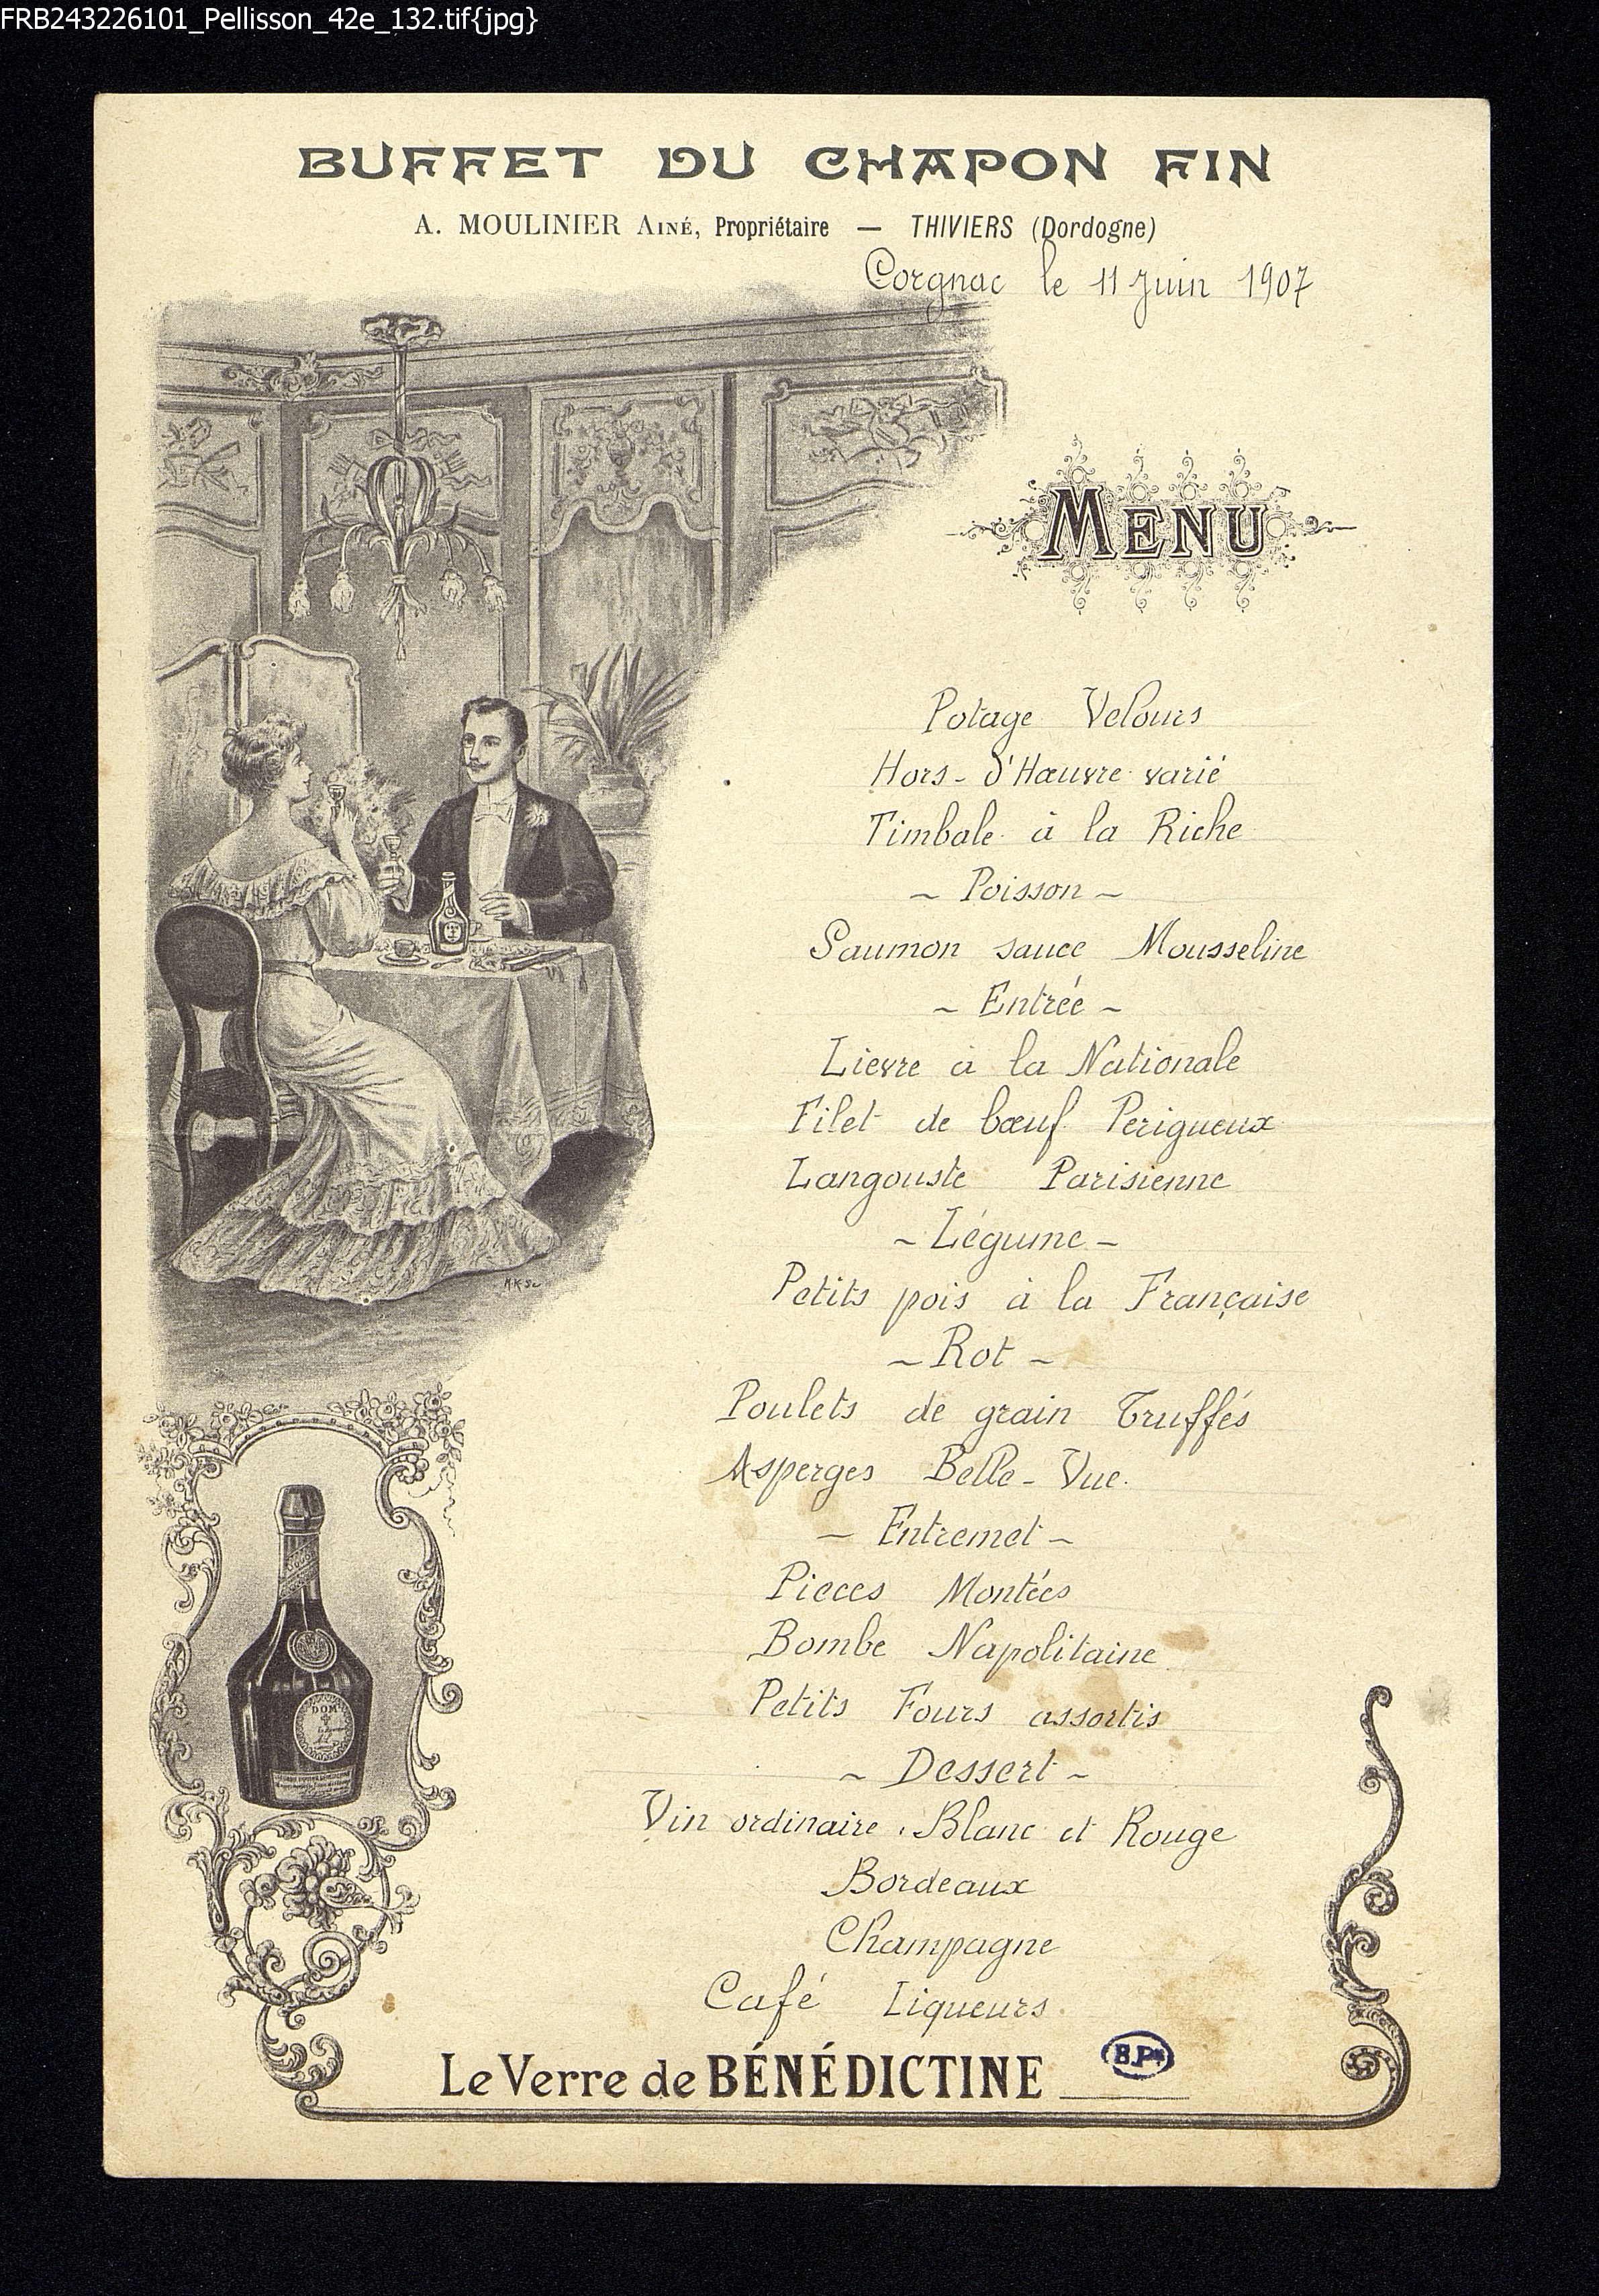 FRB243226101_Pellisson_42e_132.tif{jpg}
BUFFET DU CHAPON FIN
A. MOULINIER AINÉ, Propriétaire — THIVIERS (Dordogne)
Corgnac le 11 Juin 1907
MENU
Potage Velours
Hors-d'Hœuvre varié
Timbale à la Riche
~ Poisson ~
Saumon sauce Mousseline
~ Entrée ~
Lievre à la Nationale
Filet de bœuf Perigueux
Langouste Parisienne
~ Légume ~
Petits pois à la Française
~ Rot ~
Poulets de grain Truffés
Asperges Belle-Vue
~ Entremet ~
Pieces Montées
Bombe Napolitaine
Petits Fours assortis
~ Dessert ~
Vin ordinaire, Blanc et Rouge
Bordeaux
Champagne
Café Liqueurs
DOM
Le Verre de BÉNÉDICTINE